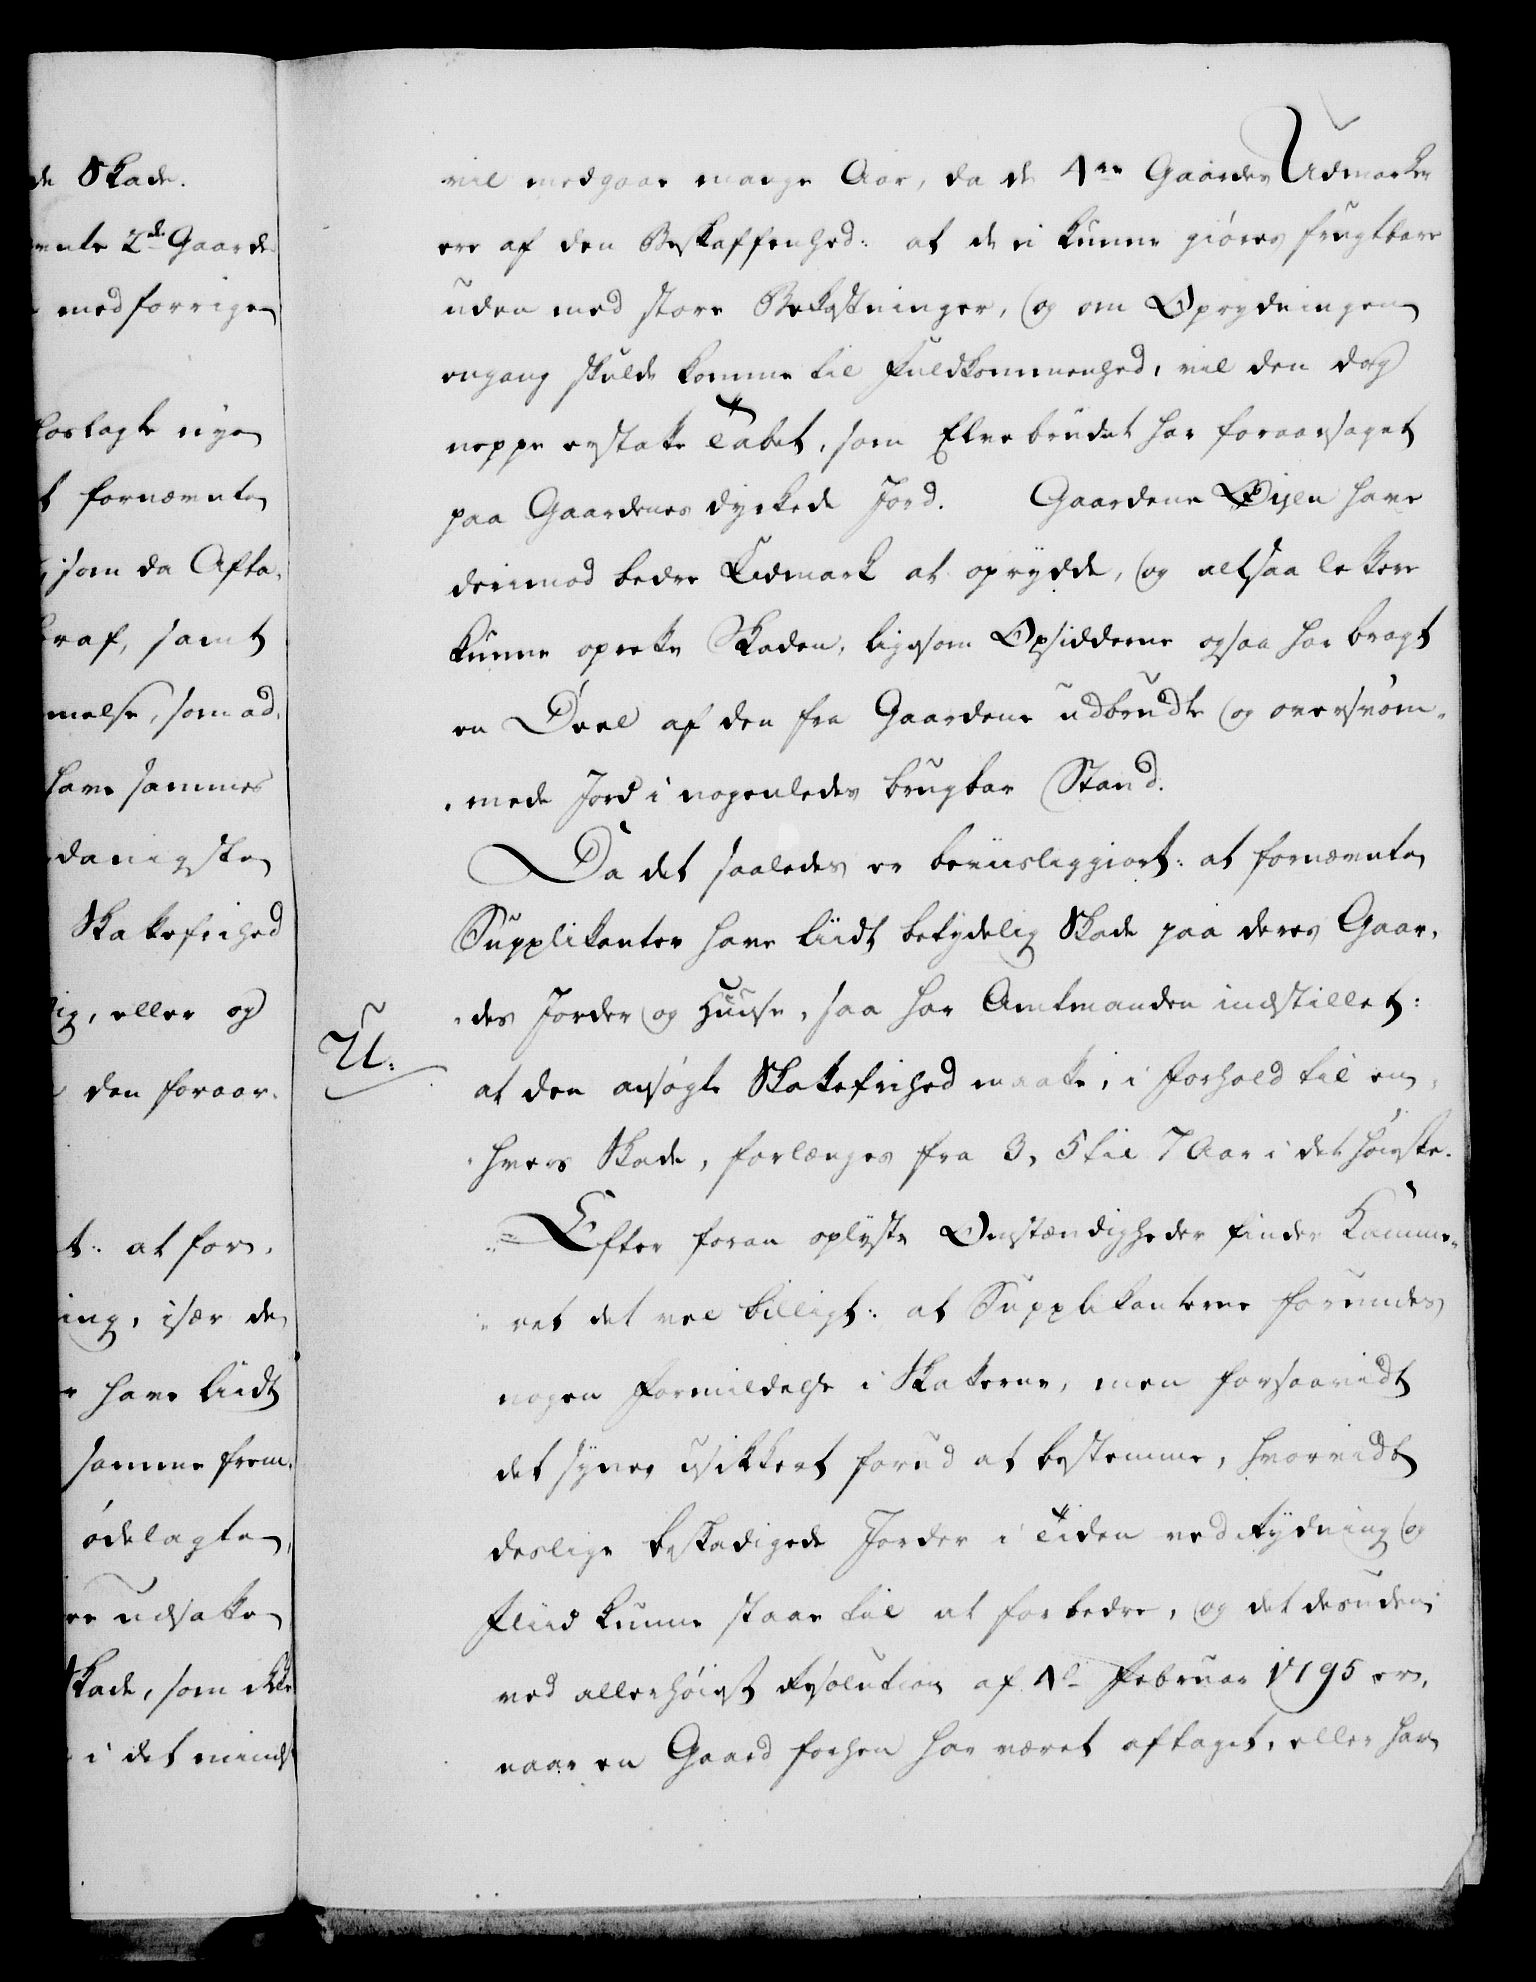 de Skade.
vnte 2de Gaarde
med forrige
bortagte nye
t fornævnte
som da Afta-
raf, samt
melse, som ad-
have sammes
danigste
Skatefrihed
ig, eller og
den foraar-
t: at for-
ing, især de
have liidt
samme frem-
ødelagte
re udsatte
Skade, som ikke
i det minds
vil medgaae mange Aar, da de 4re Gaardes Udmarker
ere af den Beskaffenhed: at de ei kunne giøres frugtbare
uden med store Bekostninger, og om Oprydningen
engang skulde komme til Fuldkommenhed, vil den dog
neppe erstatte Tabet, som Elvebrudet har foraarsaget
paa Gaardenes dyrkede Jord. Gaardene Øijen have
derimod bedre Udmark at oprydde, og altsaa lettere
kunne oprette Skaden, ligesom Opsidderne ogsaa har bragt
en Deel af den fra Gaardene udbrudte og oversvøm-
mede Jord i nogenledes brugbar Stand.
Da det saaledes er beviisliggiort: at fornævnte
Supplikanter have liidt betydelig Skade paa deres Gaar-
des Jorder og Huuse, saa har Amtmanden indstillet:
U:
at den ansøgte Skatefrihed maatte, i Forhold til en-
hvers Skade, forlænges fra 3, 5 til 7 Aar i det høieste.
Efter foran oplyste Omstændigheder finder Kamme-
ret det vel billigt: at Supplikanterne forundes
nogen Formildelse i Skatterne, men forsaavidt
det synes usikkert forud at bestemme, hvorvidt
deslige beskadigede Jorder i Tiden ved Rydning og
Fliid kunne staae til at forbedre, og det desuden
ved allerhøiest Resolution af 4de Februar 1795 er,
naar en Gaard forhen har været aftaget, eller har